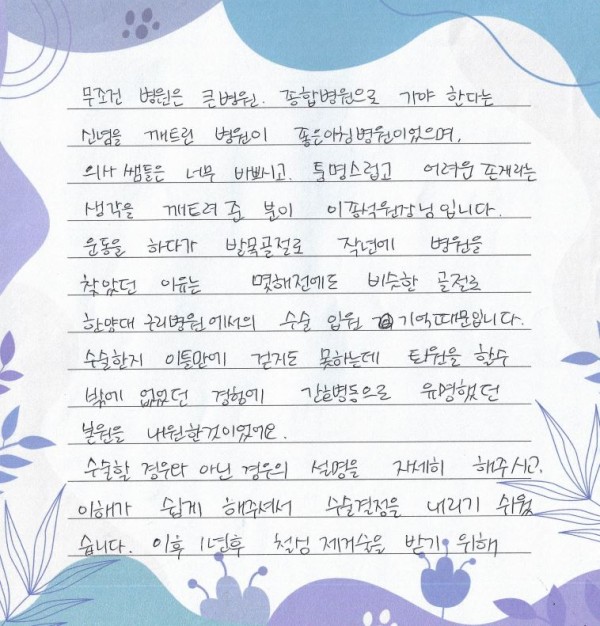 무조건 병원은 큰병원. 종합병원으로 가야 한다는
신념을 깨트린 병원이 좋은아침병원이었으며,
의사 쌤들은 너무 바쁘시고. 퉁명스럽고 어려운 존재라는
생각을 깨트려 준 분이 이종석원장님입니다.
운동을 하다가 발목골절로 작년에 병원을
찾았던 이유는 몇해전에도 비슷한 골절로
한양대 구리병원에서의 수술 입원 기억때문입니다.
수술한지 이틀만에 걷지도 못하는데 퇴원을 할수
밖에 없었던 경험에 간호병동으로 유명했던
본원을 내원한것이었어요.
수술할 경우와 아닌 경우의 설명을 자세히 해주시고.
이해가 쉽게 해주셔서 수술결정을 내리기 쉬웠
습니다. 이후 1년후 철심 제거술을 받기 위해